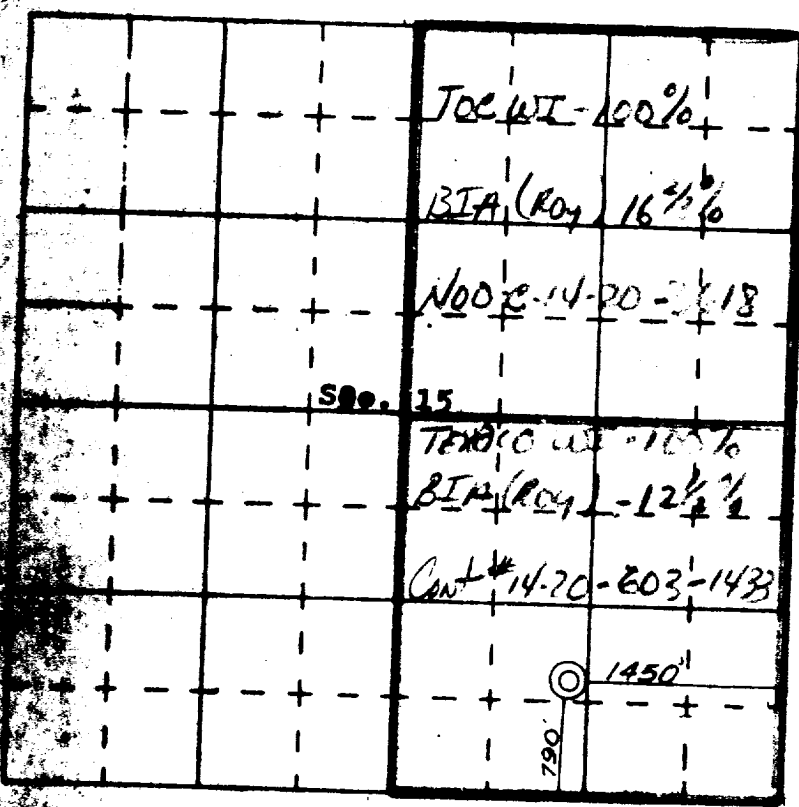 TOC WI - 100%
BIA (Roy) 16 2/3 %
NOO-C-14-20-
Sec. 15
TEXACO WI - 100%
BIA (Roy) - 12 1/2 %
Cont # 14-20-603-1433
1450'
790'